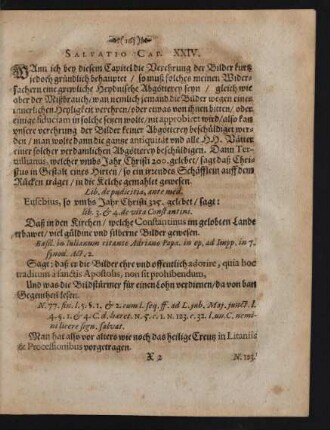 Salvatio Cap. XXIV.
Wann ich bey diesem Capitel die Verehrung der Bilder kurtz
jedoch gründlich behauptet / so muß solches meinen Wider-
sachern eine grewliche Heydnische Abgötterey seyn / gleich wie
aber der Mißbrauch / wan nemlich jemand die Bilder wegen einer
innerlichen Heyligkeit verehren / oder etwas von ihnen bitten / oder
einige fiduciam in solche setzen wolte / nit approbiert wird / also kan
unsere verehrung der Bilder keiner Abgötterey beschüldiget wer-
den / man wolte dann die gantze antiquität und alle H.H. Vätter
einer solcher verdamlichen Abgötterey beschüldigen. Dann Ter-
tullianus, welcher umbs Jahr Christi 200. gelebet / sagt daß Chri-
stus in Gestalt eines Hirten / so ein irrendes Schäfflein auff dem
Rücken träget / in die Kelche gemahlet gewesen.
Lib. de pudicitia, ante med.
Eusebius, so umbs Jahr Christi 325. gelebet / sagt:
lib. 3. & 4. de vita Constantini.
Daß in den Kirchen / welche Constantinus im gelobten Lande
erbawet / viel güldene und silberne Bilder gewesen.
Basil. in Iulianum citante Adriano Papa. in ep. ad Impp. in 7.
synod. Act. 2.
Sagt: daß er die Bilder ehre und offentlich adorire, quia hoc
traditum a sanctis Apostolis, non sit prohibendum,
Und was die Bildstürmer für einen Lohn verdienen / da von han
Gegenhein lesen.
Man hat also vor alters wie noch das heilige Creutz in Litaniis
& Processionibus vorgetragen.
X 2
N. 123.